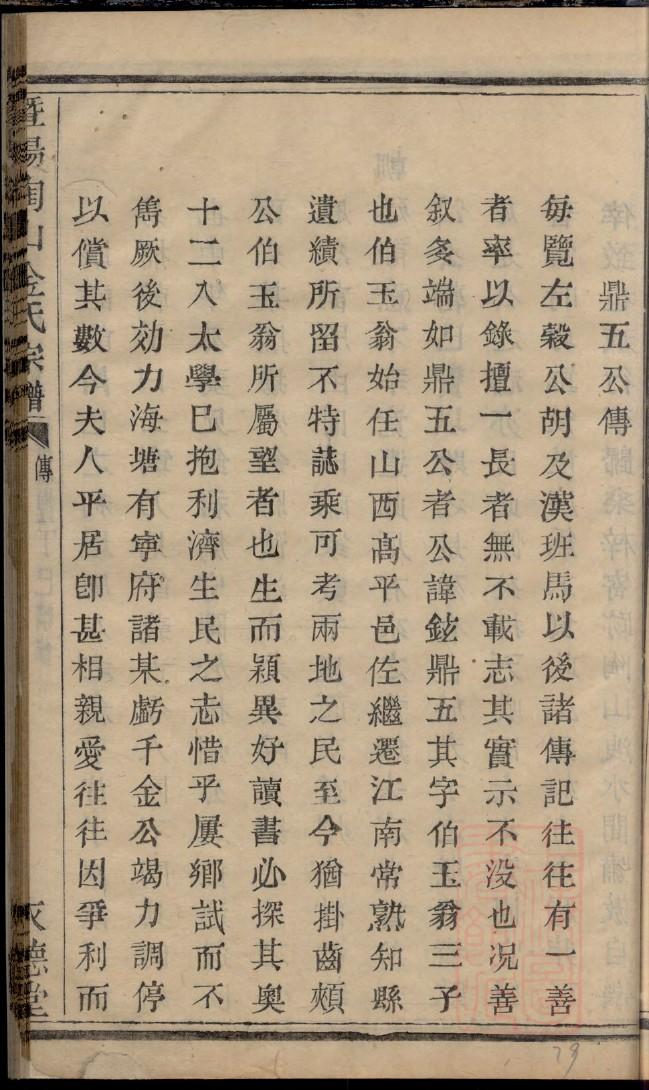 鼎五公傳
每覽左穀公胡及漢班馬以後諸傳記往往有一善
者率以錄擅一長者無不載志其實示不没也况善
叙多端如鼎五公者公諱鉉鼎五其字伯玉翁三子
也伯玉翁始任山西高平邑佐繼遷江南常熟知縣
遺績所留不特誌乘可考兩地之民至今猶掛齒頰
公伯玉翁所屬望者也生而穎異好讀書必探其奥
十二入太學已抱利濟生民之志惜乎屢鄉試而不
雋厥後効力海塘有寧府諸某虧千金公竭力調停
以償其數今夫人平居卽甚相親愛往往因爭利而
暨陽陶山金氏宗譜
傳
德堂
79